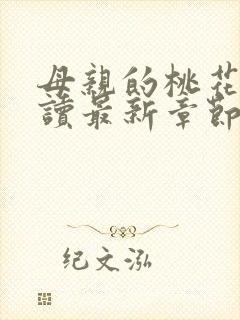 母親的桃花
讀最新章節
纪文泓